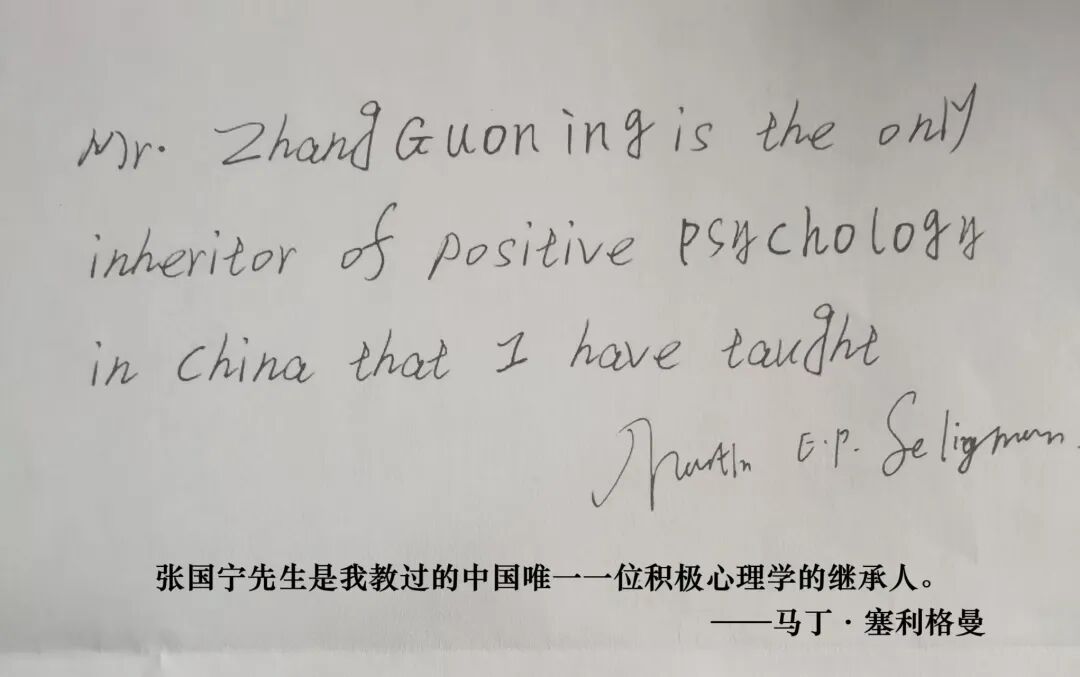 Mr. Zhang Guoning is the only
inheritor of positive psychology
in China that I have taught
Martin E.P. Seligman
张国宁先生是我教过的中国唯一一位积极心理学的继承人。
——马丁·塞利格曼